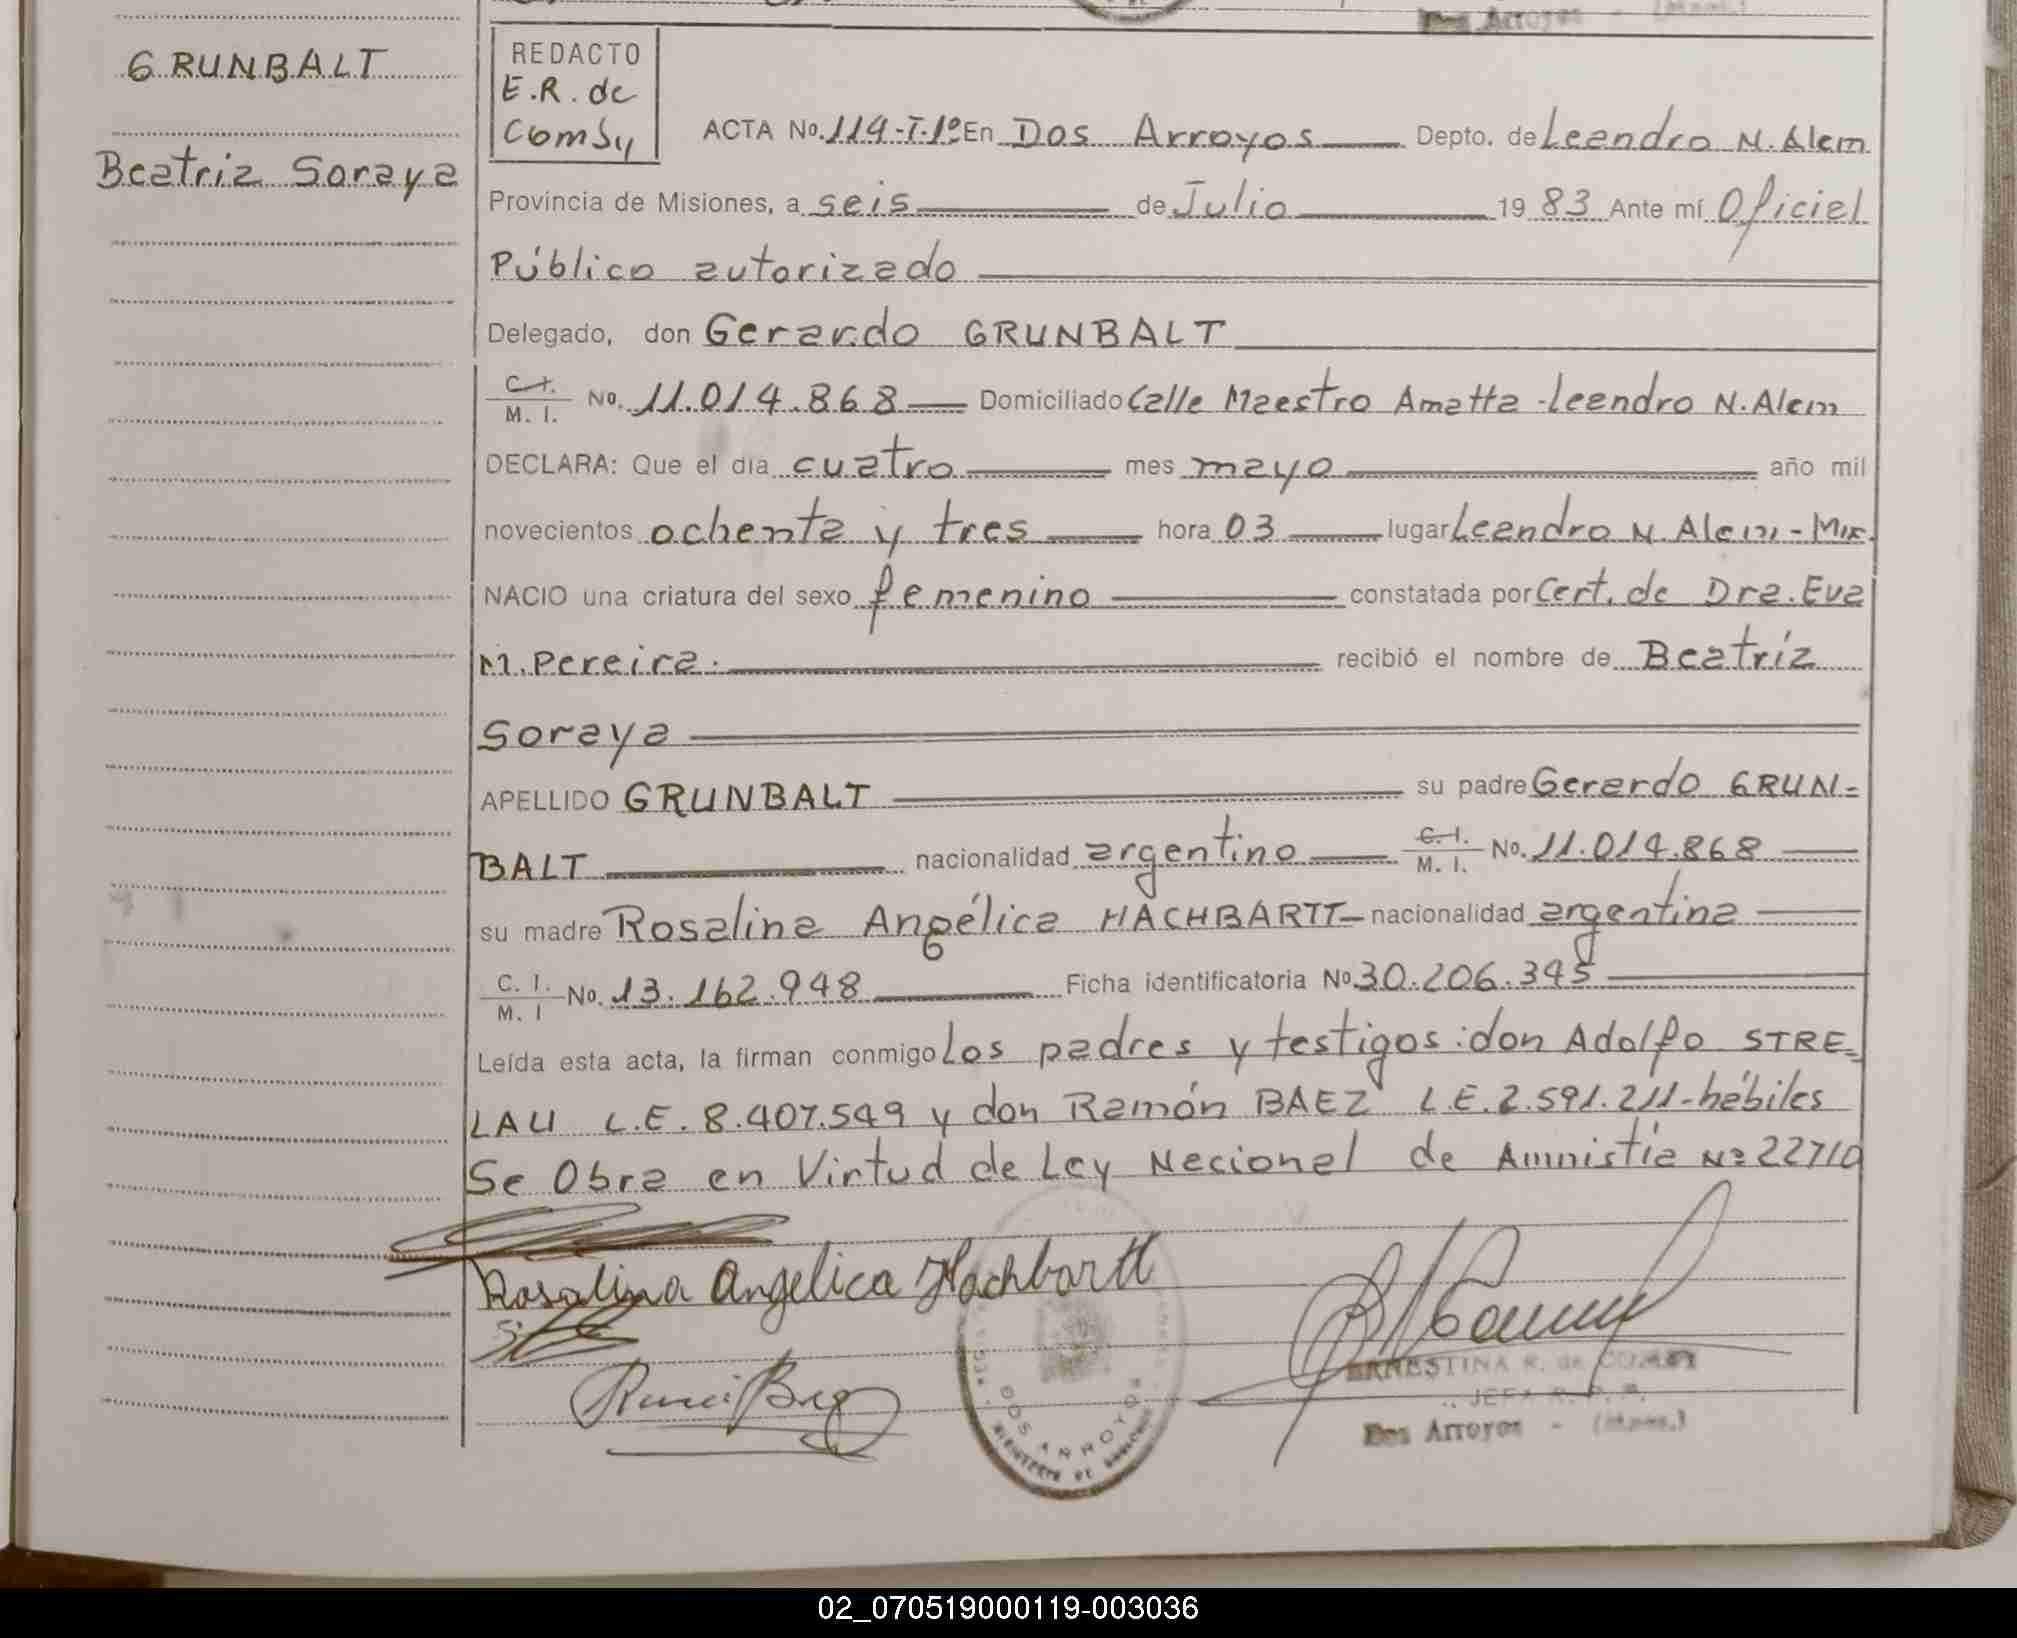 GRUNBALT
Beatriz Soraya
REDACTO
E.R. de
Comsy
ACTA No. 114-T.1º En Dos Arroyos Depto. de Leandro N. Alem
Provincia de Misiones, a seis de Julio 19 83 Ante mí Oficial
Público autorizado
Delegado, don Gerardo GRUNBALT
C.I. M. I. No. 11.014.868 Domiciliado Calle Maestro Amatta - Leandro N. Alem
DECLARA: Que el dia cuatro mes mayo año mil
novecientos ochenta y tres hora 03 lugar Leandro N. Alem - Mis.
NACIO una criatura del sexo femenino constatada por Cert. de Dra. Eva
M. Pereira. recibió el nombre de Beatríz
Soraya
APELLIDO GRUNBALT su padre Gerardo GRUN-
BALT nacionalidad argentino C.I. M. I. No. 11.014.868
su madre Rosalina Angélica HACHBARTT nacionalidad argentina
C. I. M. I No. 13.162.948 Ficha identificatoria No 30.206.345
Leída esta acta, la firman conmigo Los padres y testigos: don Adolfo STRE-
LAU L.E. 8.407.549 y don Ramón BAEZ L.E. 2.591.211-hábiles
Se Obra en Virtud de Ley Nacional de Amnistía Nº 22710
Rosalina Angelica Hachbartt
ERNESTINA R. de COMSY
JEFA R. P. P.
Dos Arroyos - (Mnes.)
DOS ARROYOS
02_070519000119-003036